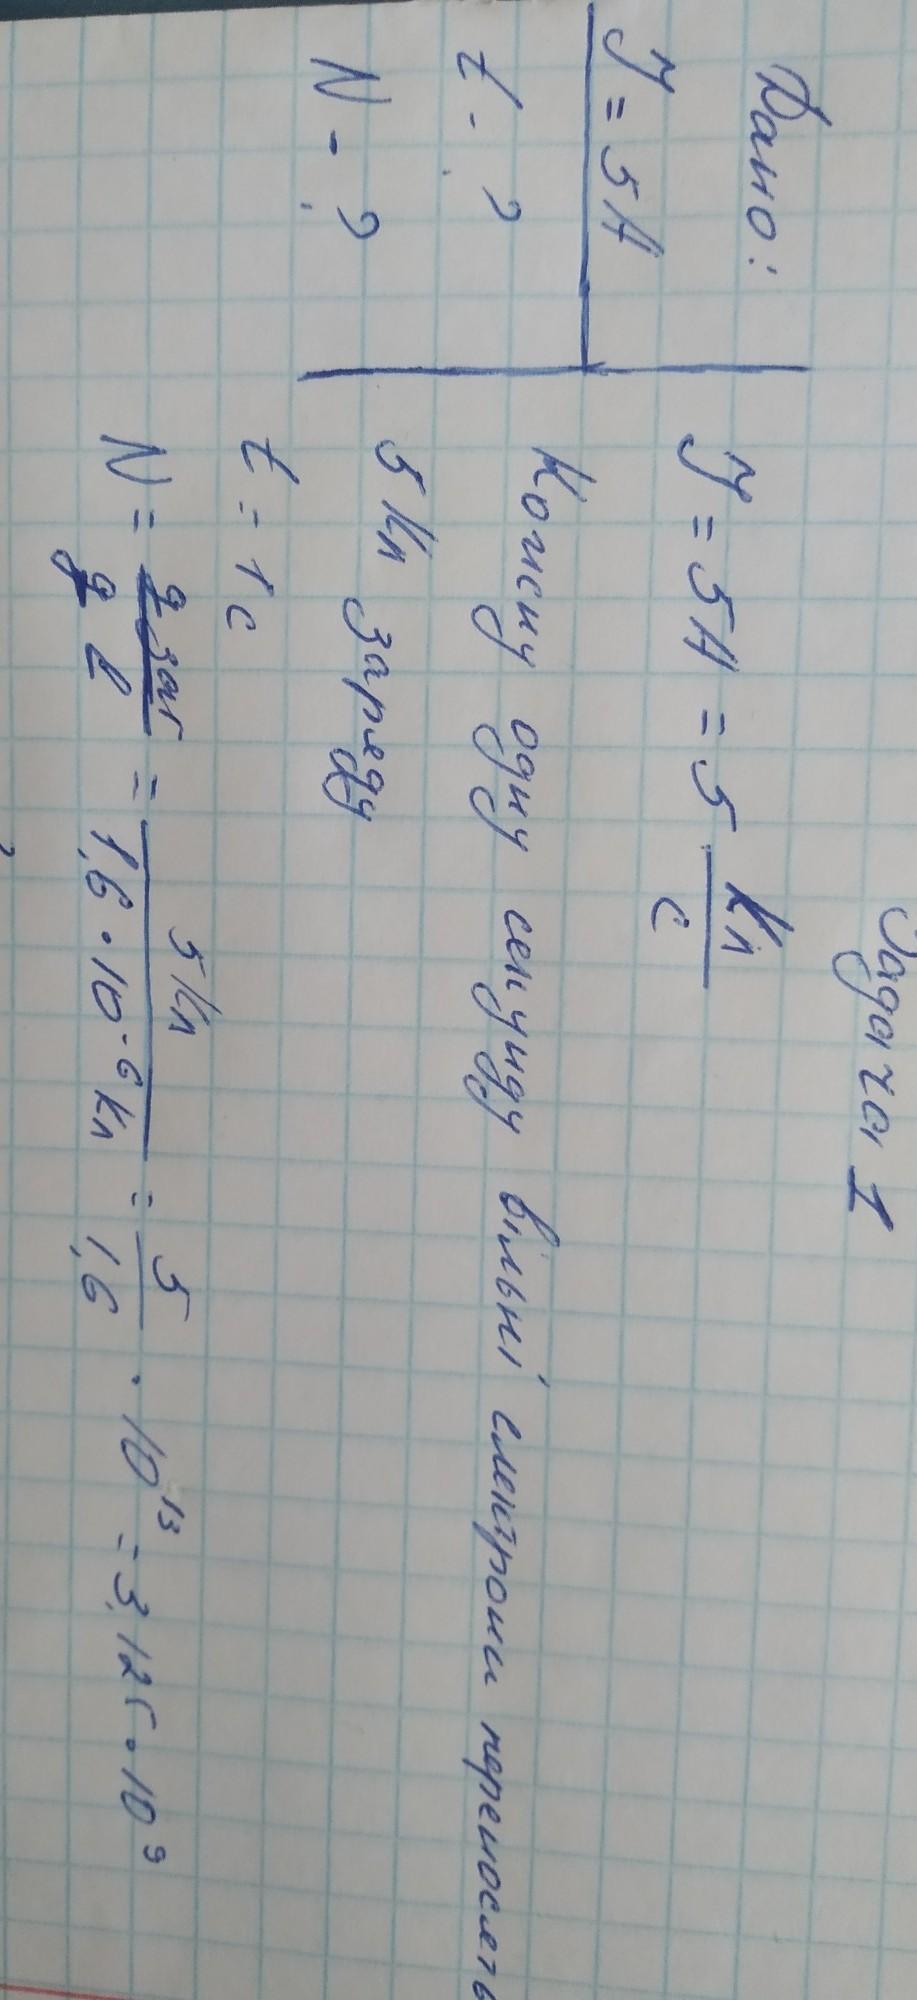 Задача 1
Дано:
I = 5 А
t - ?
N - ?
I = 5 А = 5 Кл/с
Кожну одну секунду вільні електрони переносять
5 Кл заряду
t = 1 c
N = q заг / q e = 5 Кл / 1,6 • 10⁻⁶ Кл = 5 / 1,6 · 10¹³ = 3,125 • 10⁹